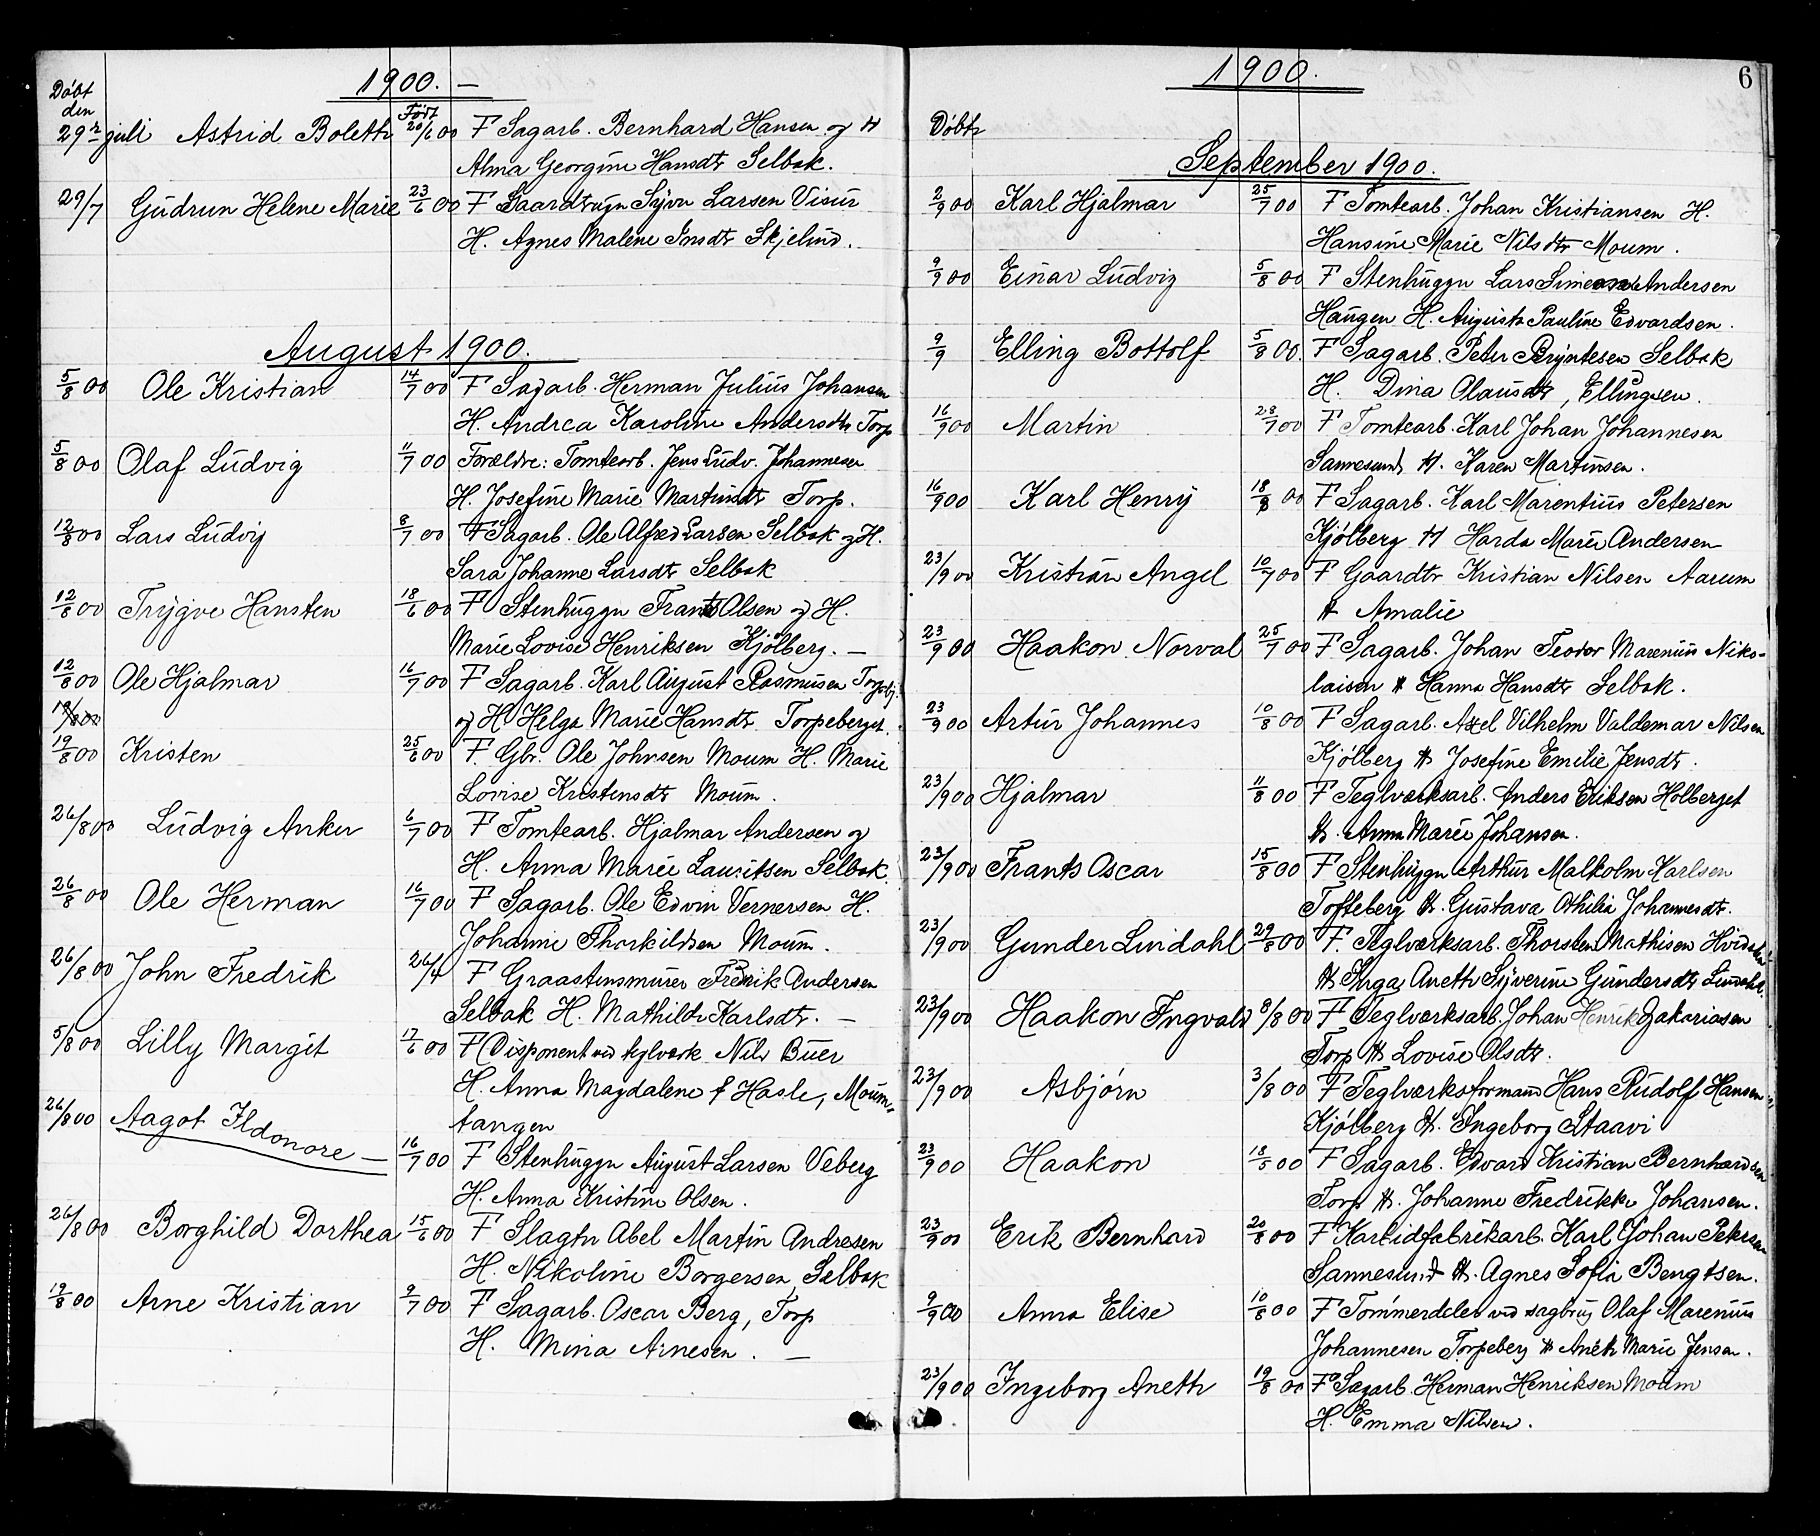 1900. —
Döbt
den
Født
29de juli Astrid Boleth 20/6 00 F Sagarb. Bernhard Hansen og H
Alma Georgine Hansdtr Selbak.
29/7 Gudrun Helene Marie 23/6 00 F Larsen
H. Agnes Malene Skjelin.
August 1900.
5/8 00 Ole Kristian 14/7 00 F Sagarb. Herman Julius Johansen
H. Andrea Karoline Andersdtr Torp
5/8 00 Olaf Ludvig 11/7 00 Forældre: Tomtearb. Jens Ludv. Johannesen
H. Josefine Marie Martinsdtr Torp.
12/8 00 Lars Ludvig 8/7 00 F Sagarb. Ole Alfred Larsen Selbak og H.
Sara Johanne Larsdtr Selbak
12/8 00 Trygve Hansten 18/6 00 F Stenhugger Frants Olsen og H.
Marie Lovise Henriksen Kjölberg. —
12/8 00 Ole Hjalmar 16/7 00 F Sagarb. Karl August Rasmusen
og H Helga Marie Hansdtr Torpeberget.
19/8 00 Kristen 25/6 00 F. Gbr. Ole Johnsen Moum H. Marie
Lovise Kristensdtr Moum.
26/8 00 Ludvig Anker 6/7 00 F Tomtearb. Hjalmar Andersen og
H. Anna Marie Lauritsen Selbak.
26/8 00 Ole Herman 16/7 00 F Sagarb. Ole Edvin Vernersen H.
Johanne Thorkildsen Moum.
26/8 00 John Fredrik 26/4 F Graastensmurer Fredrik Andersen
Selbak H. Mathilde Karlsdtr. —
5/8 00 Lilly Margit 17/6 00 F Disponent ved teglværk Nils Buer
H. Anna Magdalene f Hasle, Moum-
26/8 00 Aagot Ildonore — tangen
16/7 00 F Stenhugger August Larsen Veberg
H. Anna Kristine Olsen.
26/8 00 Borghild Dorthea 15/6 00 F Slagter Abel Martin Andresen
H. Nikoline Borgersen, Selbak
19/8 00 Arne Kristian 9/7 00 F Sagarb. Oscar Berg, Torp
H. Mina Arnesen. —
1900.
6
Döbt
September 1900.
2/9 00 Karl Hjalmar 25/7 00 F Tomtearb. Johan Kristiansen H.
Hansine Marie Nilsdtr Moum.
9/9 00 Einar Ludvig 5/8 00 F Stenhugger Lars Andersen
Haugen H. Augusta Pauline Edvardsen.
9/9 Elling Bottolf 5/8 00. F Sagarb. Peter Bryntesen Selbak
H. Dina Olausdtr, Ellingsen.
16/9 00 Martin 28/7 00 F Tomtearb. Karl Johan Johannesen
Sannesund H. Karen Martinsen.
16/9 00 Karl Henry 18/8 00 F Sagarb. Karl Marentius Petersen
Kjölberg H Harda Marie Andersen
23/9 00 Kristian Angel 10/7 00 F Gaardbr Kristian Nilsen Aarum
H Amalie
23/9 00 Haakon Norval 25/7 00 F Sagarb. Johan Teodor Marenius Niko-
laisen H Hanna Hansdtr Selbak.
23/9 00 Artur Johannes 10/8 00 F Sagarb. Axel Vilhelm Valdemar Nilsen
Kjölberg H Josefine Emilie Jensdtr.
23/9 00 Hjalmar 11/8 00 F Teglværksarb. Anders Eriksen Holberget
H. Anna Marie Johansen.
23/9 00 Frants Oscar 15/8 00 F Stenhugger Arthur Malkolm Karlsen
Tofteberg H. Gustava Othilia Johannesdtr.
23/9 00 Gunder Lindahl 29/8 00 F. Teglværksarb. Thorsten Mathisen
H Inga Anette Syverine Gundersdtr Lindahl.
23/9 00 Haakon Ingvald 8/8 00 F Teglværksarb. Johan Henrik Zakariasen
Torp H Lovise Olsdtr.
23/9 00 Asbjørn 3/8 00 F Teglværksformand Hans Rudolf Hansen
Kjölberg H. Ingeborg Staavi
23/9 00 Haakon 18/5 00 F Sagarb. Edvard Kristian Bernhardsen
Torp H. Johanne Fredrikke Johansen.
23/9 00 Erik Bernhard 20/8 00 F Karbidfabrikarb. Karl Johan Petersen
Sannesund H. Agnes Sofia Bengtsen.
9/9 00 Anna Elise 10/8 00 F Tömmerdeler ved sagbrug Olaf Marenius
Johannesen Torpeberg H Aneth Marie Jensen.
23/9 00 Ingeborg Aneth 19/8 00 F Sagarb. Herman Henriksen Moum
H. Emma Nilsen.